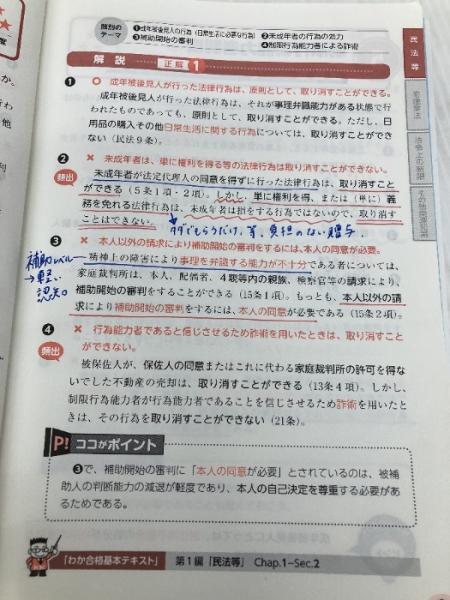 肢別の
テーマ
❶成年被後見人の行為(日常生活に必要な行為)
❷未成年者の行為の効力
❸補助開始の審判
❹制限行為能力者による詐術
解説 正解 1
❶ ○ 成年被後見人が行った法律行為は、原則として、取り消すことができる。
成年被後見人が行った法律行為は、それが事理弁識能力がある状態で行
われたものであっても、原則として、取り消すことができる。ただし、日
用品の購入その他日常生活に関する行為については、取り消すことができ
ない(民法9条)。
❷ × 未成年者は、単に権利を得る等の法律行為は取り消すことができない。
頻出
未成年者が法定代理人の同意を得ずに行った法律行為は、取り消すこと
ができる(5条1項・2項)。しかし、単に権利を得、または(単に)義
務を免れる法律行為は、未成年者は損をする行為ではないので、取り消す
ことはできない。
タダでもらうだけ、等、負担のない贈与。
❸ × 本人以外の請求により補助開始の審判をするには、本人の同意が必要。
補助レベル
→軽い
認知。
精神上の障害により事理を弁識する能力が不十分である者については、
家庭裁判所は、本人、配偶者、4親等内の親族、検察官等の請求により、
補助開始の審判をすることができる(15条1項)。もっとも、本人以外の請
求により補助開始の審判をするには、本人の同意が必要である(15条2項)。
❹ × 行為能力者であると信じさせるため詐術を用いたときは、取り消すこと
ができない。
頻出
被保佐人が、保佐人の同意またはこれに代わる家庭裁判所の許可を得な
いでした不動産の売却は、取り消すことができる(13条4項)。しかし、
制限行為能力者が行為能力者であることを信じさせるため詐術を用いたと
きは、その行為を取り消すことができない(21条)。
P! ココがポイント
❸で、補助開始の審判に「本人の同意が必要」とされているのは、被補
助人の判断能力の減退が軽度であり、本人の自己決定を尊重する必要があ
るためである。
「わか合格基本テキスト」 第1編「民法等」 Chap.1~Sec.2
民法等